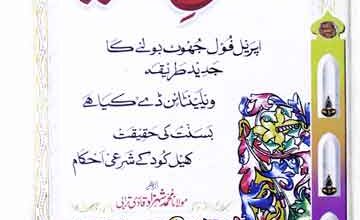 اپریل فول جھوٹ بولنے کا
جدید طریقہ
ویلینٹائن ڈے کیا ہے
بسنت کی حقیقت
کھیل کود کے شرعی احکام
مولانا محمد شہزاد قادری ترابی